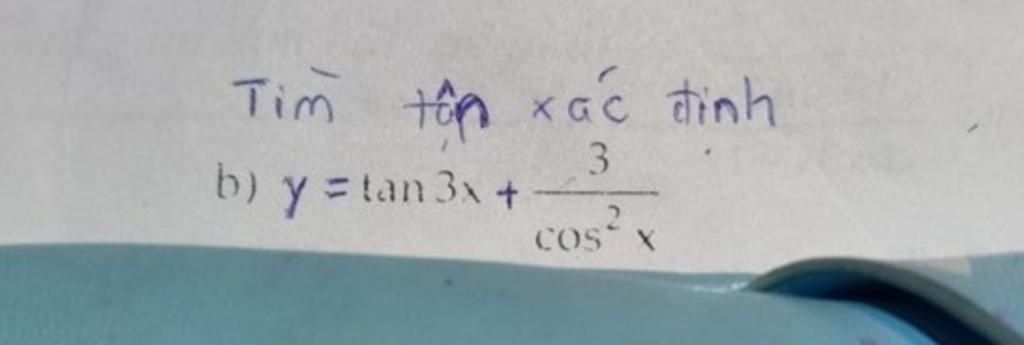 Tìm tập xác định
b) y = tan 3x + \frac{3}{cos^2 x}